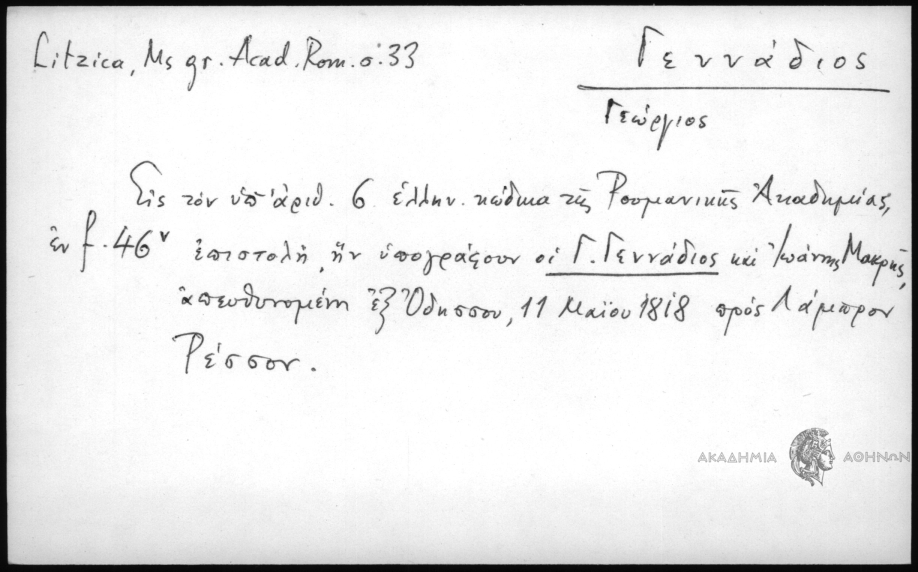 Litzica, Ms gr. Acad. Rom. σ. 33
Γεννάδιος
Γεώργιος
Εἰς τὸν ὑπ' ἀριθ. 6 ἑλλην. κώδικα τῆς Ῥουμανικῆς Ἀκαδημίας,
ἐν f. 46ᵛ ἐπιστολή, ἣν ὑπογράφουν οἱ Γ. Γεννάδιος καὶ Ἰωάννης Μακρῆς,
ἀπευθυνομένη ἐξ Ὀδησσοῦ, 11 Μαΐου 1818 πρὸς Λάμπρον
Ῥέσσον.
ΑΚΑΔΗΜΙΑ ΑΘΗΝΩΝ